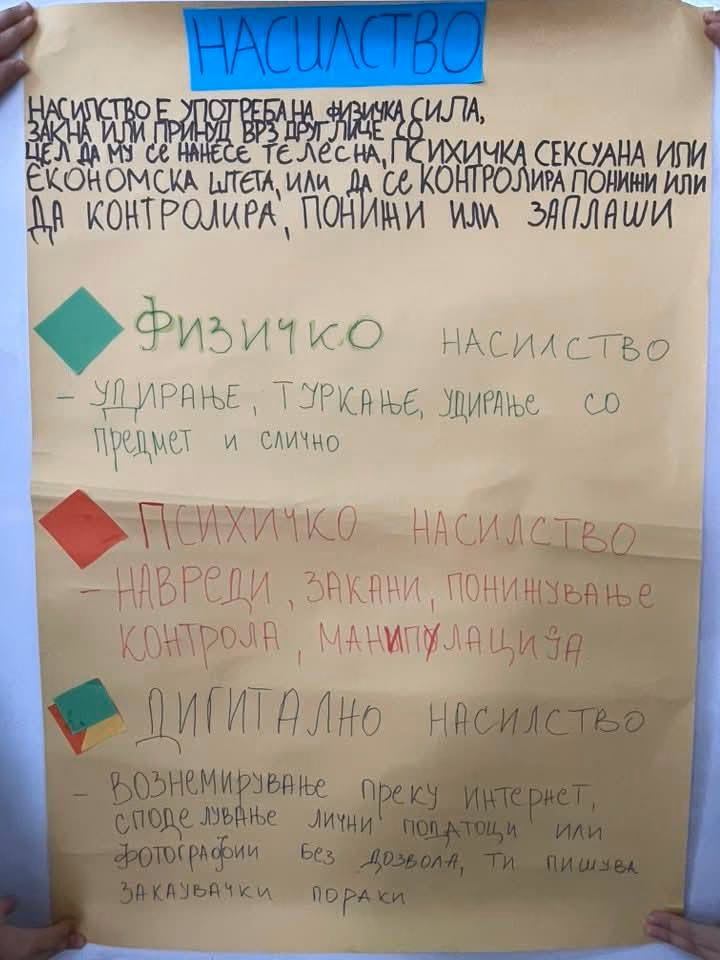 НАСИЛСТВО
НАСИЛСТВО Е УПОТРЕБА НА ФИЗИЧКА СИЛА,
ЗАКНА ИЛИ ПРИНУД ВРЗ ДРУГ ЛИЦЕ СО
ЦЕЛ ДА МУ СЕ НАНЕСЕ ТЕЛЕСНА, ПСИХИЧКА СЕКСУАНА ИЛИ
ЕКОНОМСКА ШТЕТА, ИЛИ ДА СЕ КОНТРОЛИРА ПОНИЖИ ИЛИ
ДА КОНТРОЛИРА, ПОНИЖИ ИЛИ ЗАПЛАШИ
ФИЗИЧКО НАСИЛСТВО
- УДИРАЊЕ, ТУРКАЊЕ, УДИРАЊЕ СО
ПРЕДМЕТ И СЛИЧНО
ПСИХИЧКО НАСИЛСТВО
- НАВРЕДИ, ЗАКАНИ, ПОНИЖУВАЊЕ
КОНТРОЛА, МАНИПУЛАЦИЈА
ДИГИТАЛНО НАСИЛСТВО
- ВОЗНЕМИРУВАЊЕ ПРЕКУ ИНТЕРНЕТ,
СПОДЕЛУВАЊЕ ЛИЧНИ ПОДАТОЦИ ИЛИ
ФОТОГРАФИИ БЕЗ ДОЗВОЛА, ТИ ПИШУВА
ЗАКАУВАЧКИ ПОРАКИ